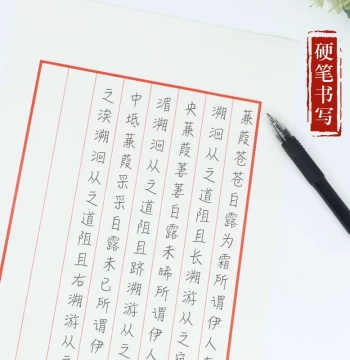 硬笔书写
蒹葭苍苍白露为霜所谓伊人
溯洄从之道阻且长溯游从之宛
央蒹葭萋萋白露未晞所谓伊人
湄溯洄从之道阻且跻溯游从之
中坻蒹葭采采白露未已所谓伊
之涘溯洄从之道阻且右溯游从之